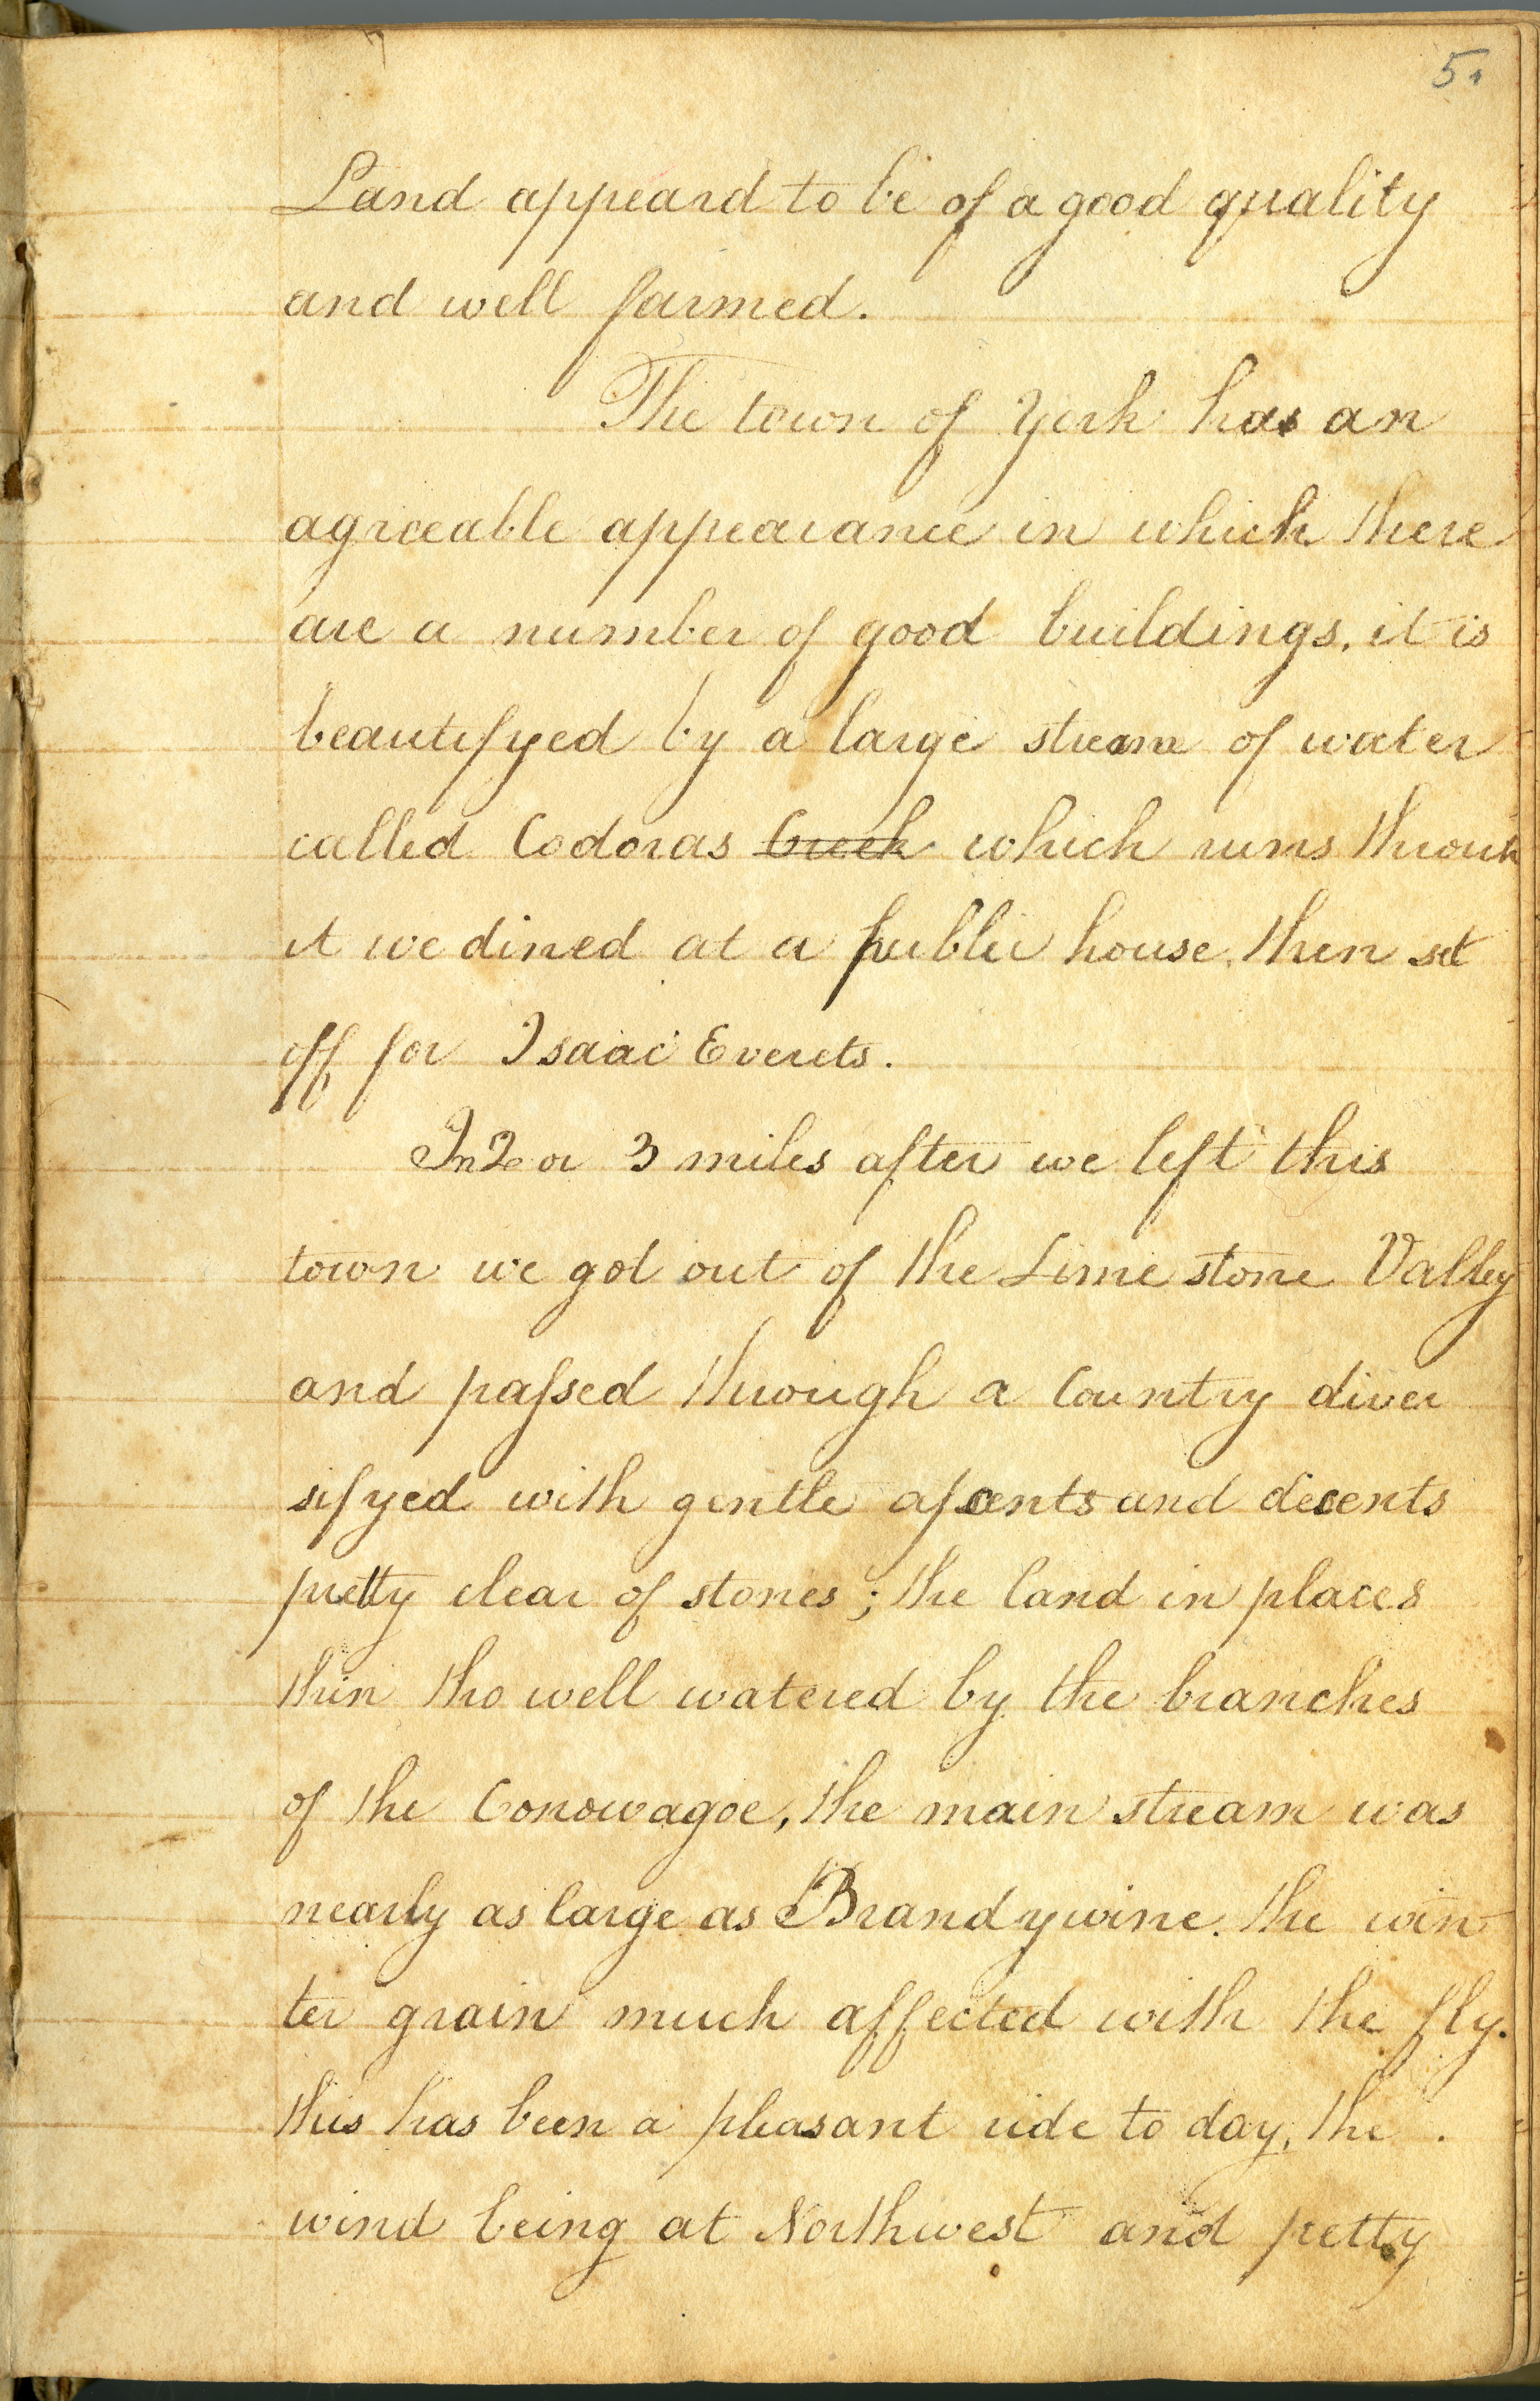 5.
Land appeard to be of a good quality
and well farmed.
The town of York has an
agreeable appearance in which there
are a number of good buildings. it is
beautifyed by a large stream of water
called Codoras Creek which runs throuh
it we dined at a public house, then set
off for Isaac Everets.
In 2 or 3 miles after we left this
town we got out of the Lime stone Valley
and paſsed through a Country diver
sifyed with gentle aſcents and decents
pretty clear of stones; the land in places
thin tho well watered by the branches
of the Conowagoe, the main stream was
nearly as large as Brandywine. the win
ter grain much affected with the fly.
this has been a pleasant ride to day, the
wind being at Northwest and pretty